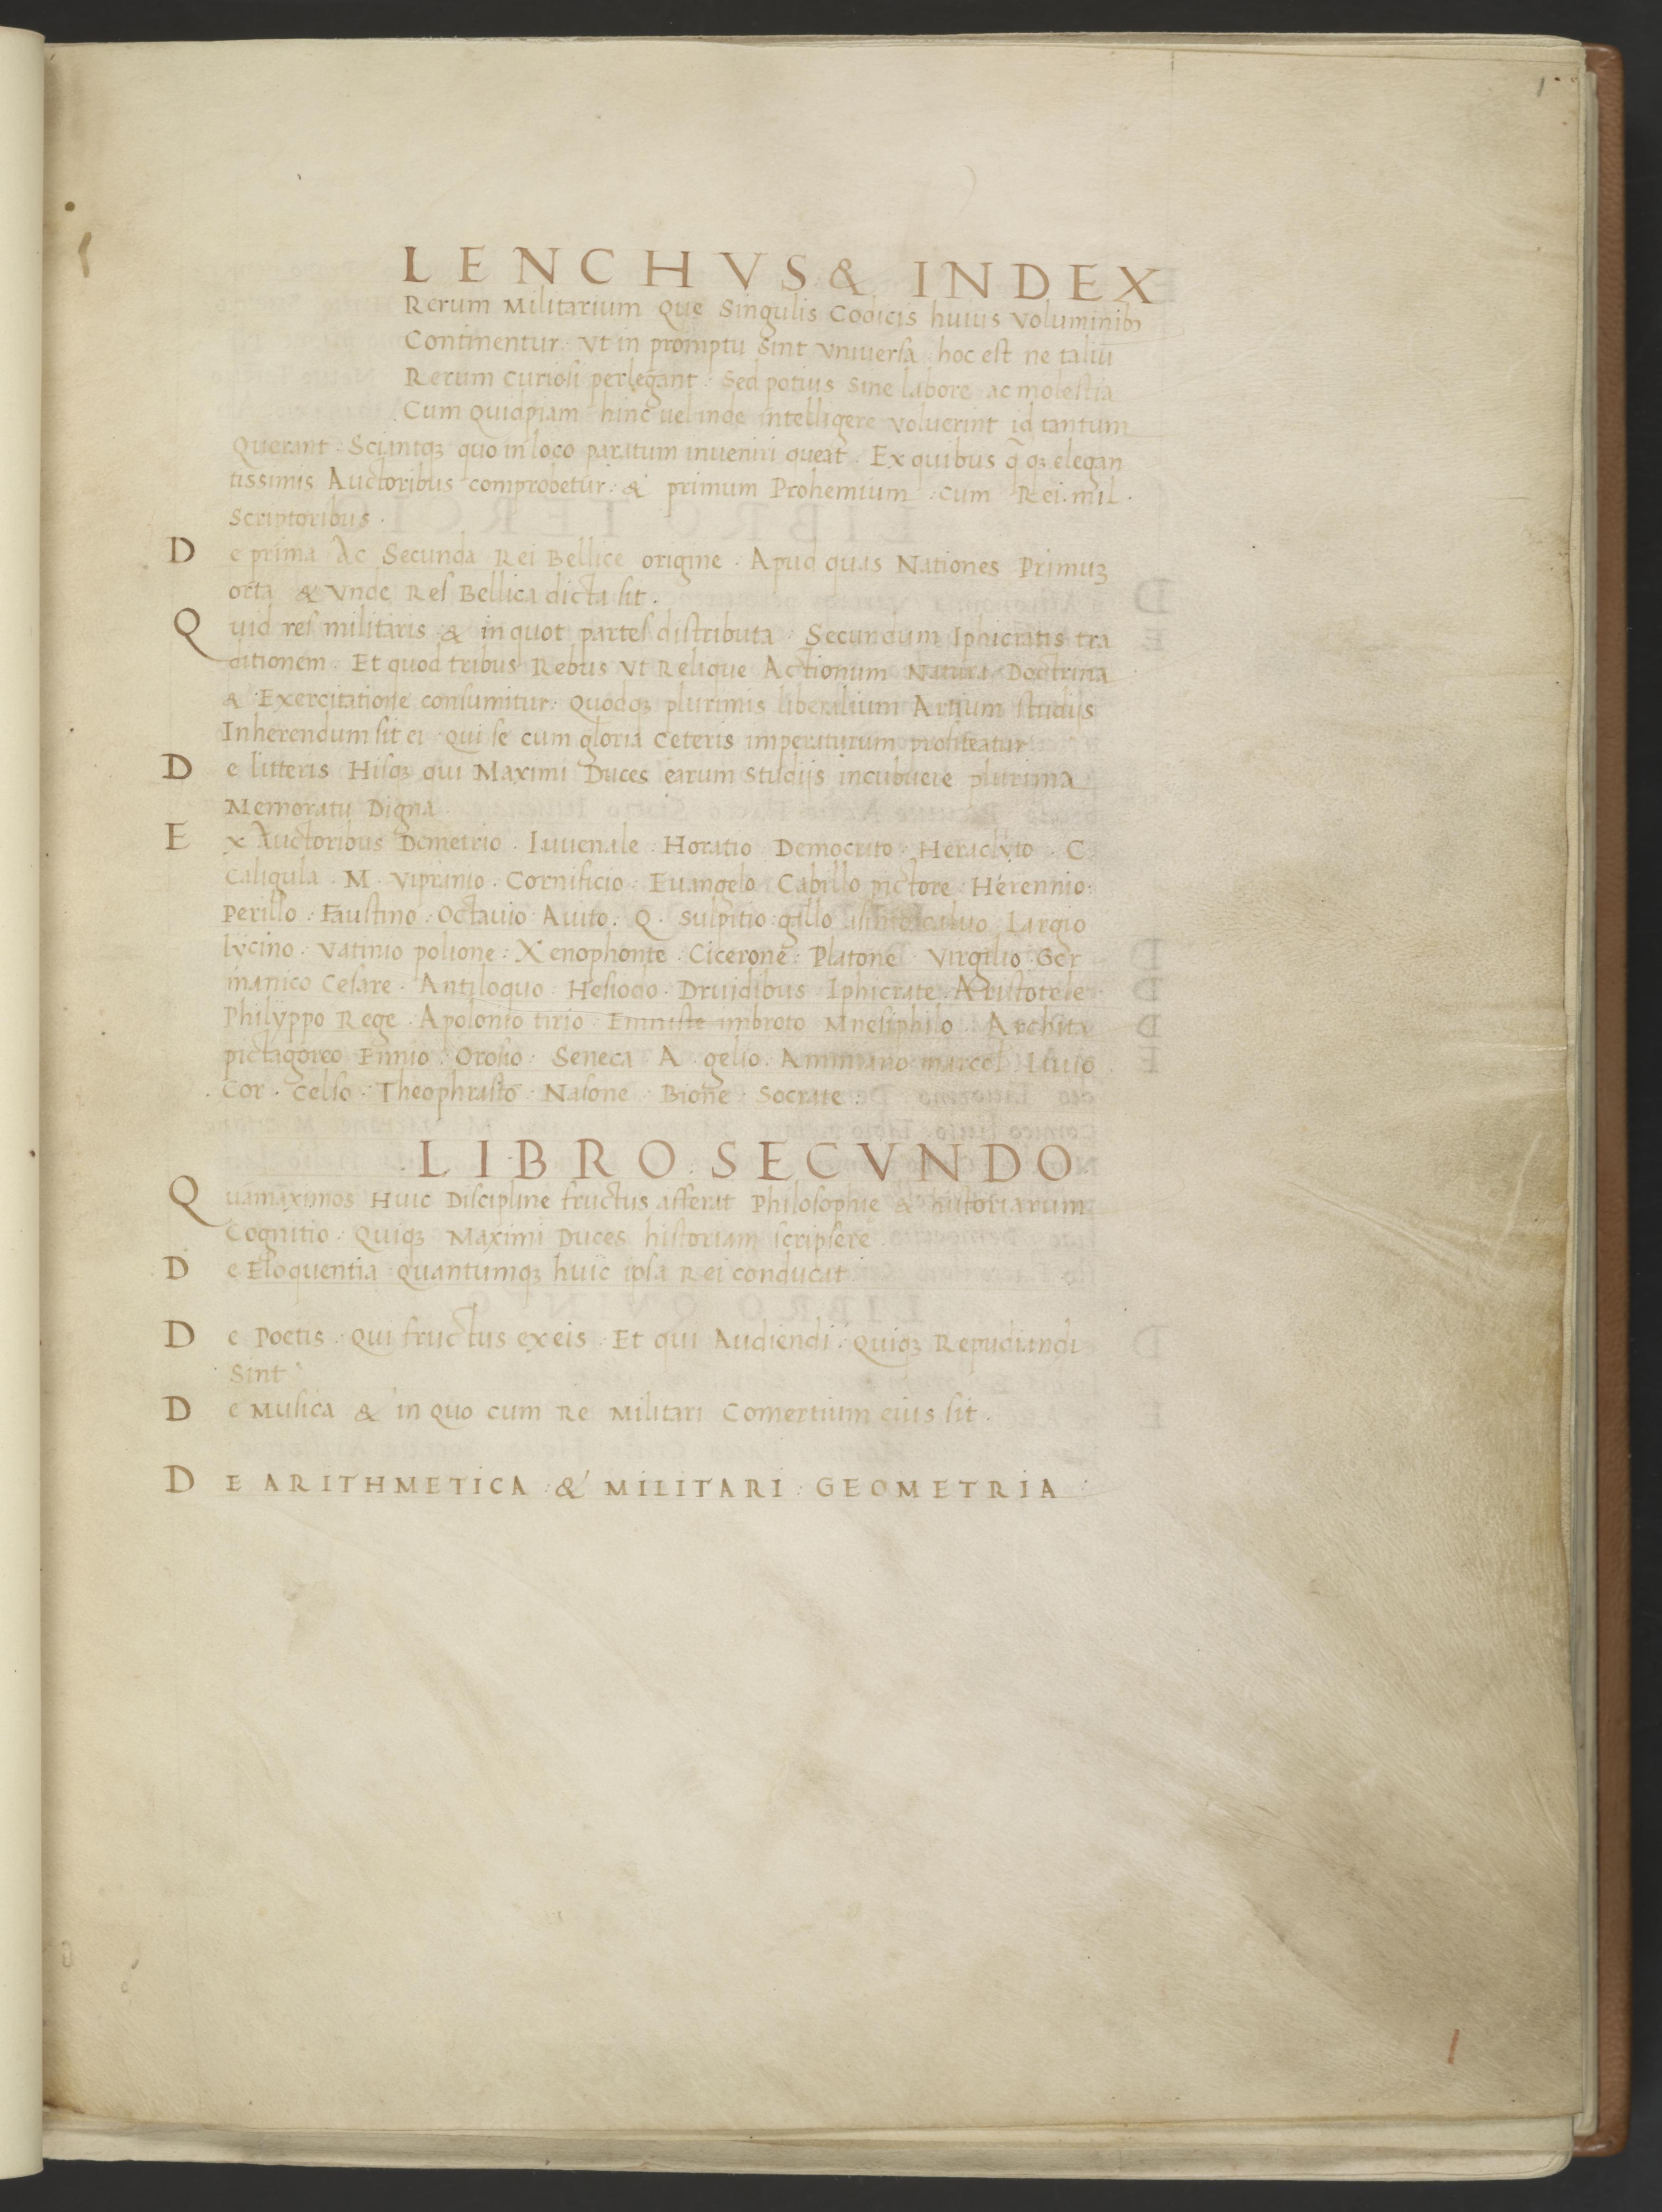 1
LENCHVS & INDEX
Rerum Militarium Que Singulis Codicis huius Voluminibꝫ
Continentur. Vt in promptu sint vniuersa. hoc est ne taliū
Rerum curiosi perlegant. Sed potius sine labore ac molestia
Cum Quidpiam hinc uel inde intelligere voluerint id tantum
Querant. Sciantqꝫ quo in loco paratum inueniri queat. Ex quibus q̄qꝫ elegan
tissimis Auctoribus comprobetur. & primum Prohemium. cum Rei. mil.
Scriptoribus.
De prima Ac Secunda Rei Bellice origine. Apud quas Nationes Primuꝫ
orta & Vnde Res Bellica dicta sit.
Quid res militaris & in quot partes distributa. Secundum Iphicratis tra
ditionem. Et quod tribus Rebus Vt Relique Actionum Natura Doctrina
& Exercitatione consumitur. Quodqꝫ plurimis liberalium Artium studijs
Inherendum sit ei qui se cum gloria ceteris imperaturum profiteatur
De litteris Hisqꝫ qui Maximi Duces earum studijs incubuere plurima
Memoratu Digna.
Ex Auctoribus Demetrio. Iuuenale. Horatio. Democrito. Heraclyto. C
Caligula. M. Viprinio. Cornificio. Euangelo. Cabillo pictore. Herennio.
Perillo. Faustino. Octauio Auito. Q. Sulpitio gallo Largio
lycino. Vatinio polione. Xenophonte. Cicerone. Platone. Virgilio. Ger
manico Cesare. Antiloquo. Hesiodo. Druidibus. Iphicrate. Aristotele.
Philyppo Rege. Apolonio tirio. imbroto Mnesiphilo. Archita
pictagoreo Ennio. Orosio. Seneca. A. gelio. Ammiano marcel. Liuio.
Cor. Celso. Theophrasto. Nasone. Bione. Socrate.
LIBRO. SECVNDO.
Quamaximos Huic Discipline fructus afferat Philosophie & historiarum
Cognitio. Quiqꝫ Maximi Duces historiam scripsere
De Eloquentia quantumqꝫ huic ipsa Rei conducat
De Poetis. Qui fructus ex eis. Et qui Audiendi. Quiqꝫ Repudiandi
Sint
De Musica & in Quo cum Re Militari Comertium eius sit.
DE ARITHMETICA & MILITARI GEOMETRIA
1